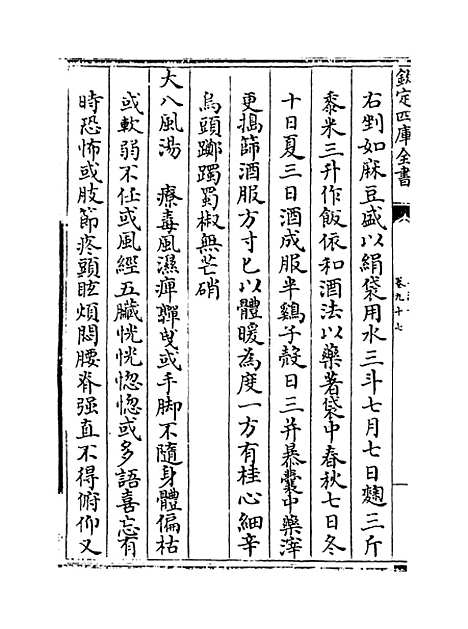 欽定四庫全書
卷九十七
右剉如麻豆盛以絹袋用水三斗七月七日麴三斤
黍米三升作飯依和酒法以藥著袋中春秋七日冬
十日夏三日酒成服半鷄子殻日三并暴囊中藥滓
更搗篩酒服方寸匕以體暖為度一方有桂心細辛
烏頭躑躅蜀椒無芒硝
大八風湯 療毒風濕痺嚲曳或手脚不隨身體偏枯
或軟弱不任或風經五臟恍恍惚惚或多語喜忘有
時恐怖或肢節疼頭眩煩悶腰脊强直不得俯仰又